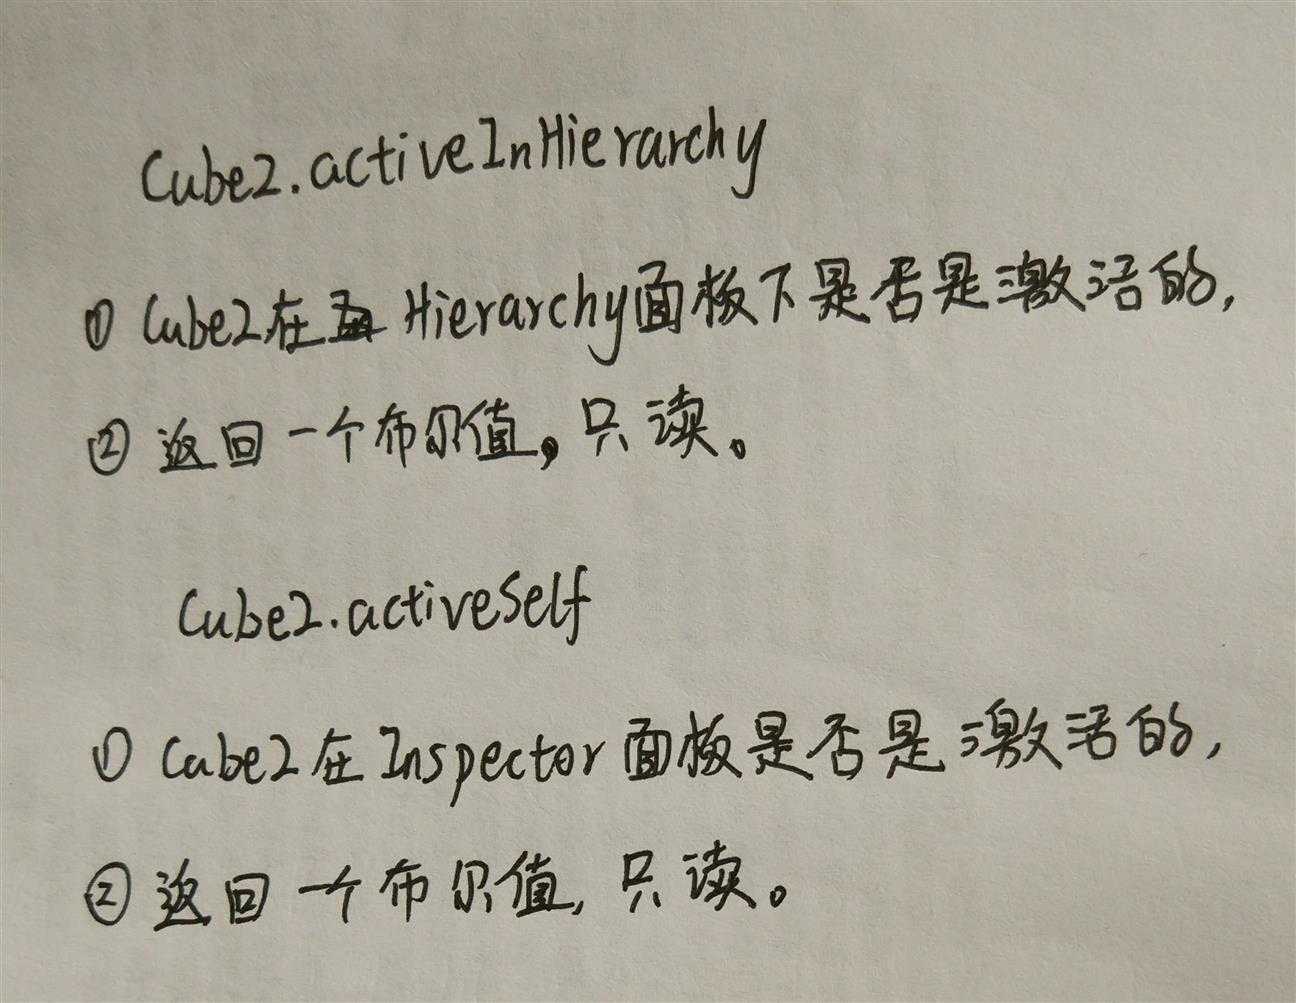 Cube2.activeInHierarchy
① Cube2在 Hierarchy面板下是否是激活的,
② 返回一个布尔值。只读。
Cube2.activeSelf
① Cube2在Inspector面板是否是激活的,
② 返回一个布尔值,只读。